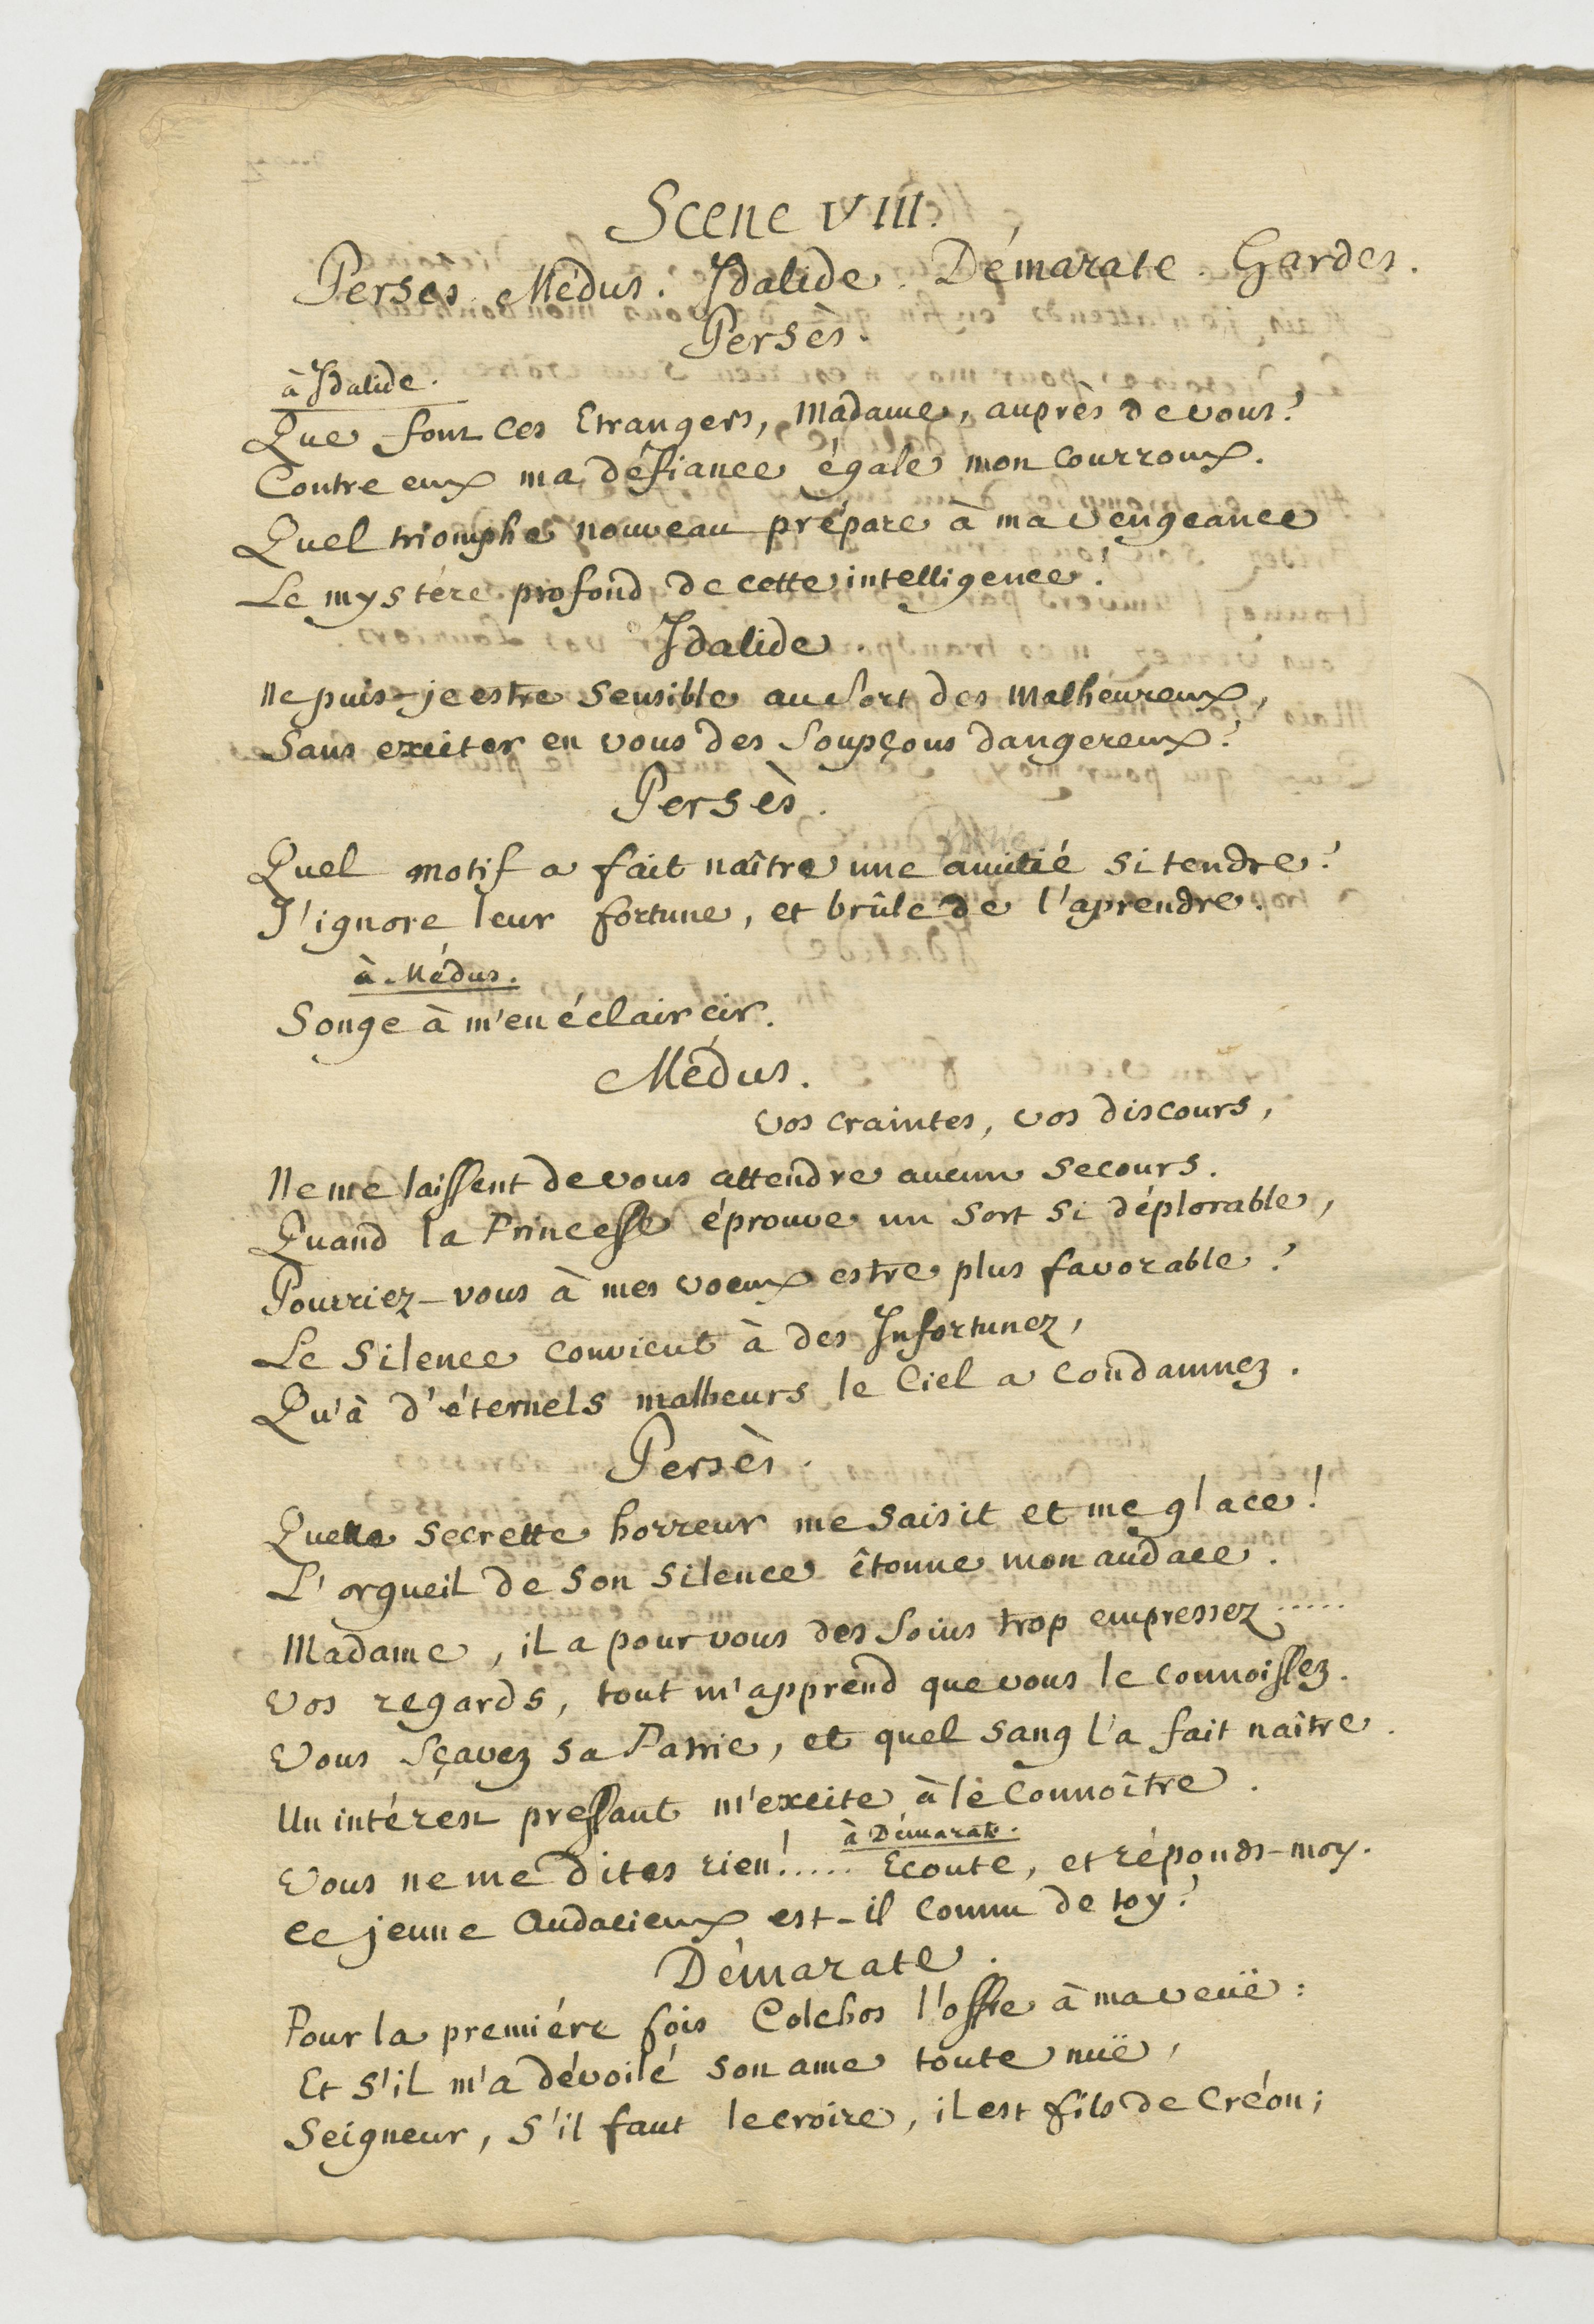 Scene VIII.
Perses. Médus. Idalide. Démarate. Gardes.
Persès.
à Idalide.
Que font ces Etrangers, Madame, auprès de vous?
Contre eux ma défiance égale mon courroux.
Quel triomphe nouveau prépare à ma vengeance
Le mystére profond de cette intelligence!
Idalide.
Ne puis-je estre sensible au sort des malheureux,
Sans exciter en vous des soupçons dangereux?
Persès.
Quel motif a fait naître une amitié si tendre?
J'ignore leur fortune, et brûle de l'aprendre.
à Médus.
Songe à m'en éclaircir.
Médus.
Vos craintes, vos discours,
Ne me laissent de vous attendre aucun secours.
Quand la Princesse éprouve un sort si déplorable,
Pourriez-vous à mes voeux estre plus favorable?
Le silence convient à des Infortunez,
Qu'à d'éternels malheurs le Ciel a condamnez.
Persès.
Quelle secrette horreur me saisit et me glace!
L'orgueil de son silence étonne mon audace.
Madame, il a pour vous des soins trop empressez.....
Vos regards, tout m'apprend que vous le connoissez.
Vous sçavez sa Patrie, et quel sang l'a fait naître.
Un intérest pressant m'excite à le connoître.
à Démarate.
Vous ne me dites rien!..... Ecoute, et réponds-moy.
Ce jeune Audacieux est-il connu de toy?
Démarate.
Pour la premiére fois Colchos l'offre à ma veuë:
Et s'il m'a dévoilé son ame toute nuë,
Seigneur, s'il faut le croire, il est fils de Créon;